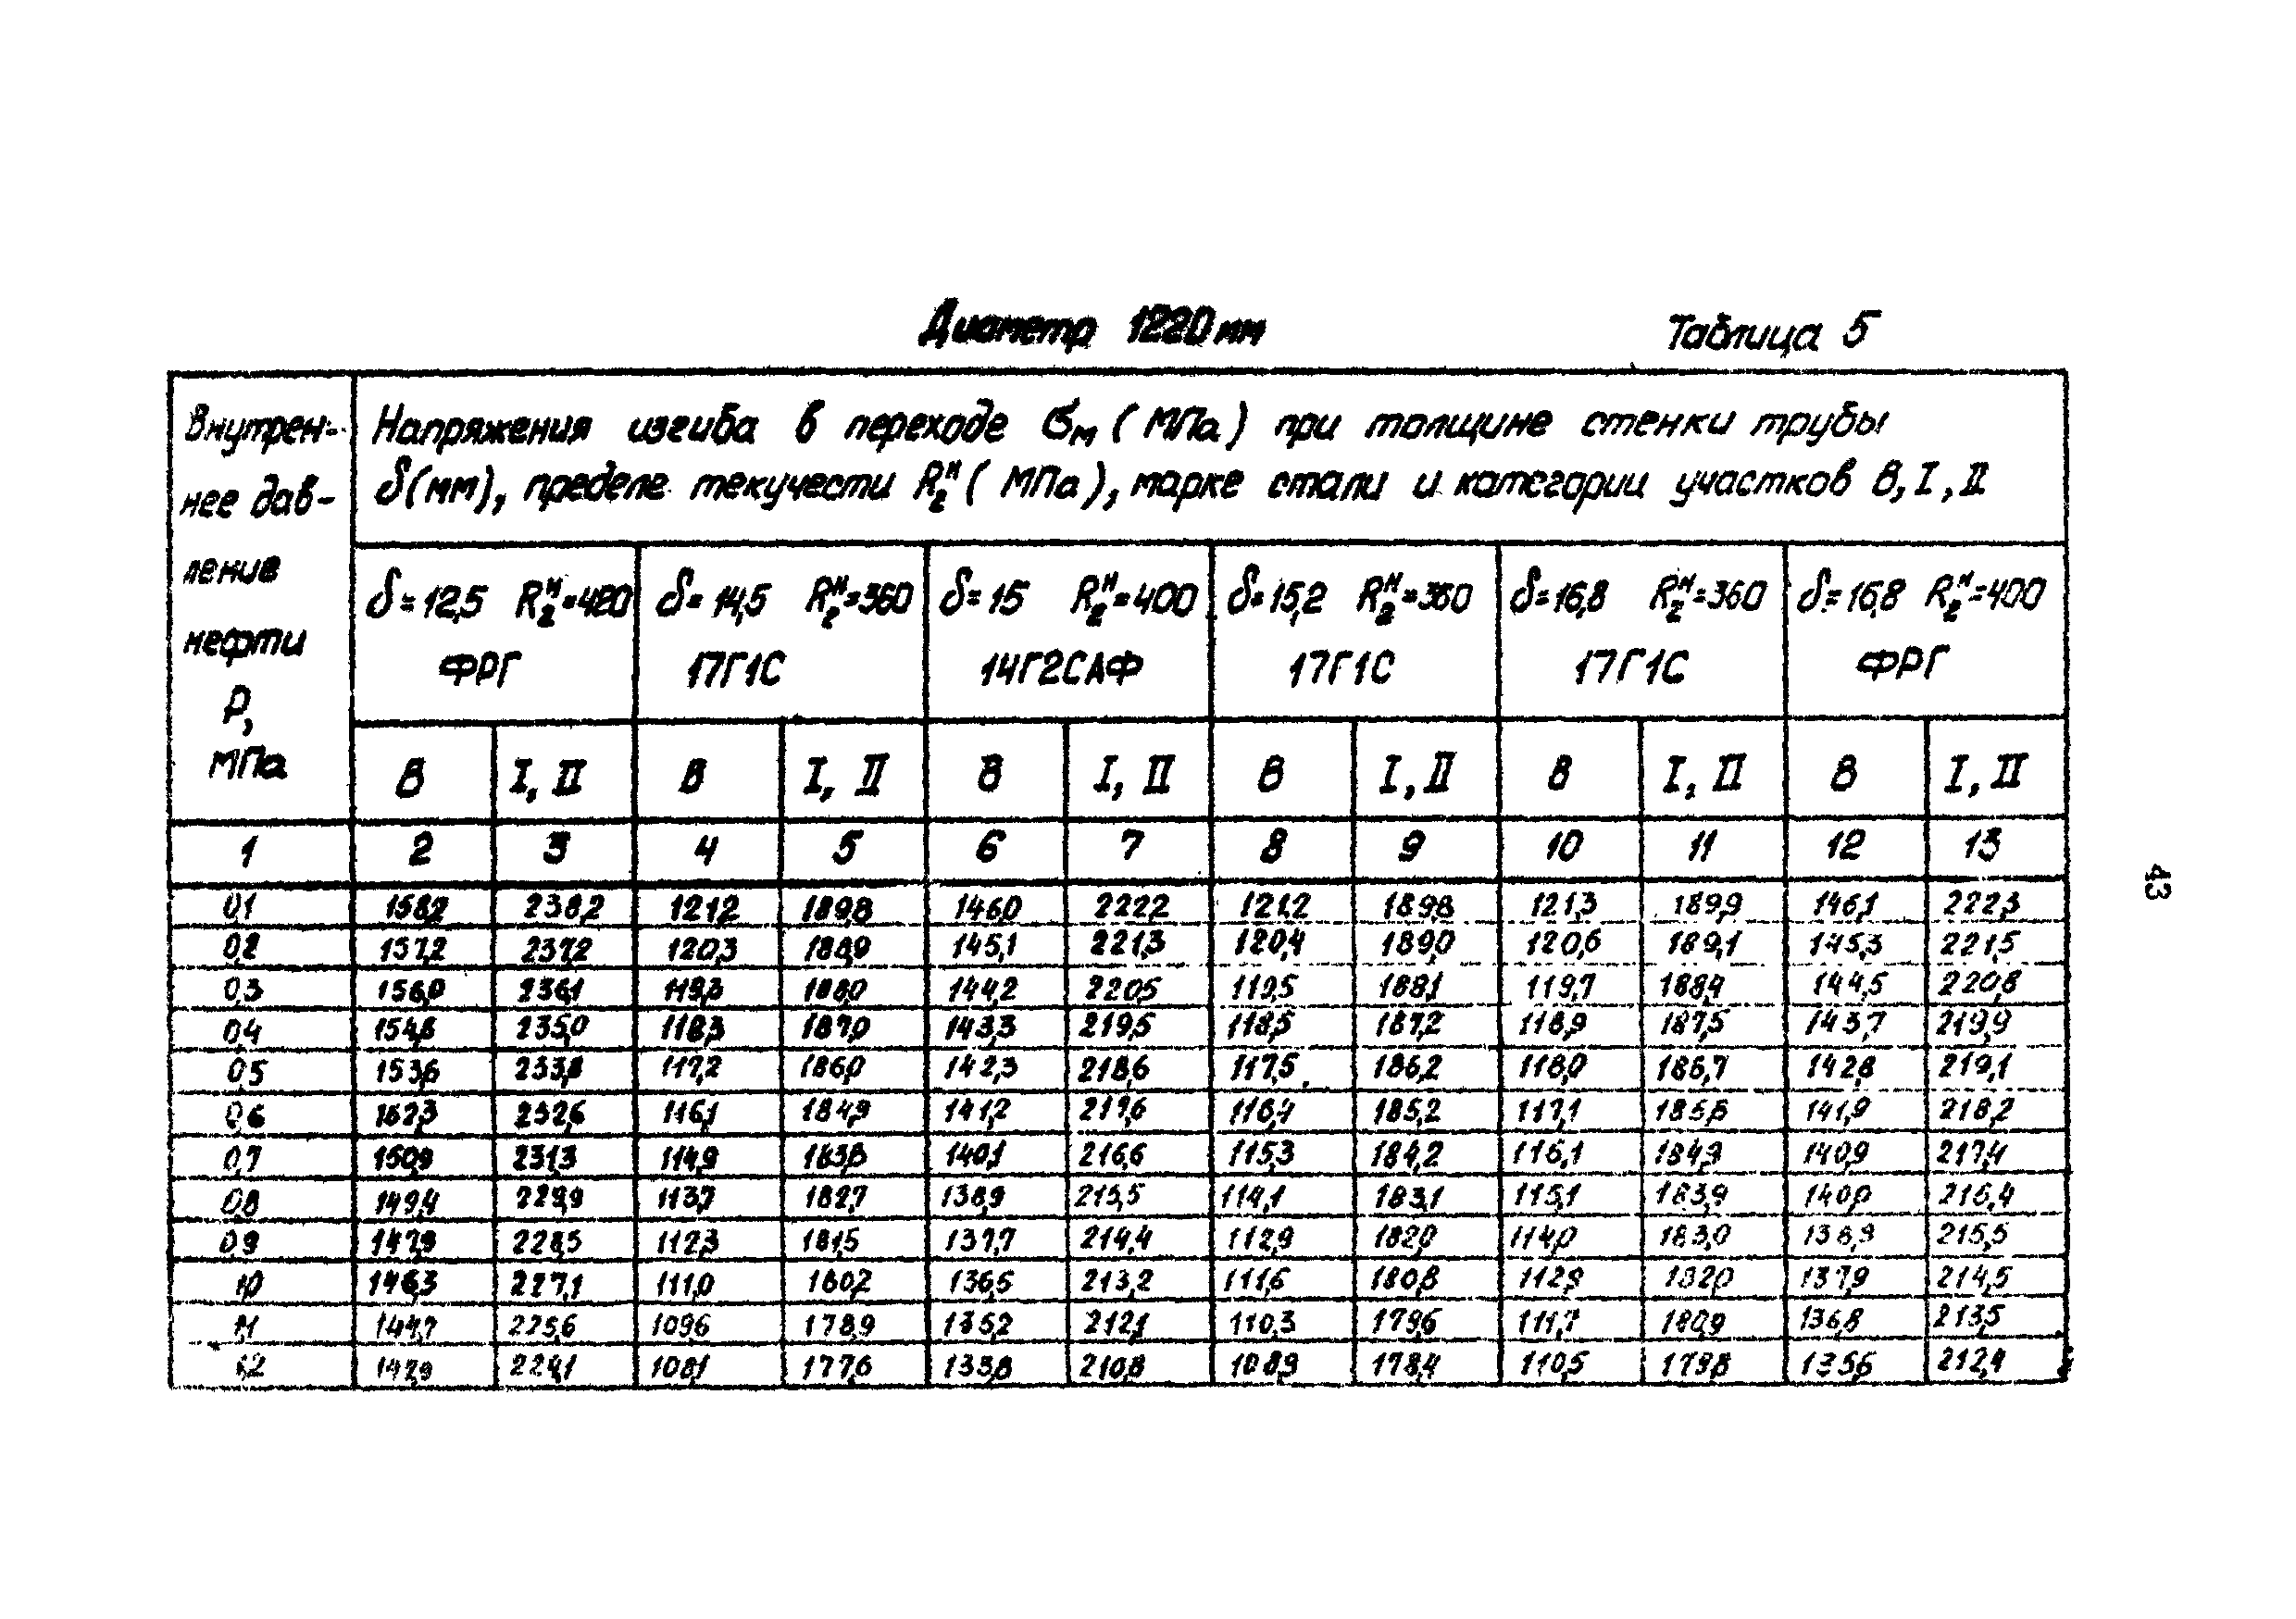 Диаметр 1220 мм Таблица 5
Внутрен-
нее дав-
ление
нефти
Р,
МПа
Напряжения изгиба в переходе σм (МПа) при толщине стенки трубы
δ(мм), пределе текучести R₂ᴴ (МПа), марке стали и категории участков В, I, II
δ=12,5 R₂ᴴ=420 δ=14,5 R₂ᴴ=360 δ=15 R₂ᴴ=400 δ=15,2 R₂ᴴ=360 δ=16,8 R₂ᴴ=360 δ=16,8 R₂ᴴ=400
ФРГ 17Г1С 14Г2САФ 17Г1С 17Г1С ФРГ
В I, II В I, II В I, II В I, II В I, II В I, II
1 2 3 4 5 6 7 8 9 10 11 12 13
0,1 158,2 238,2 121,2 189,8 146,0 222,2 121,2 189,8 121,3 189,9 146,1 222,3
0,2 157,2 237,2 120,3 188,9 145,1 221,3 120,4 189,0 120,6 189,1 145,3 221,5
0,3 156,0 236,1 119,3 188,0 144,2 220,5 119,5 188,1 119,7 188,4 144,5 220,8
0,4 154,8 235,0 118,3 187,0 143,3 219,5 118,5 187,2 118,9 187,5 143,7 219,9
0,5 153,6 233,8 117,2 186,0 142,3 218,6 117,5 186,2 118,0 186,7 142,8 219,1
0,6 152,3 232,6 116,1 184,9 141,2 217,6 116,4 185,2 117,1 185,8 141,9 218,2
0,7 150,9 231,3 114,9 183,8 140,1 216,6 115,3 184,2 116,1 184,9 140,9 217,4
0,8 149,4 229,9 113,7 182,7 138,9 215,5 114,1 183,1 115,1 183,9 140,0 216,4
0,9 147,9 228,5 112,3 181,5 137,7 214,4 112,9 182,0 114,0 183,0 138,9 215,5
1,0 146,3 227,1 111,0 180,2 136,5 213,2 111,6 180,8 112,9 182,0 137,9 214,5
1,1 144,7 225,6 109,6 178,9 135,2 212,1 110,3 179,6 111,7 180,9 136,8 213,5
1,2 142,9 224,1 108,1 177,6 133,8 210,8 108,9 178,4 110,5 179,8 135,6 212,4
43